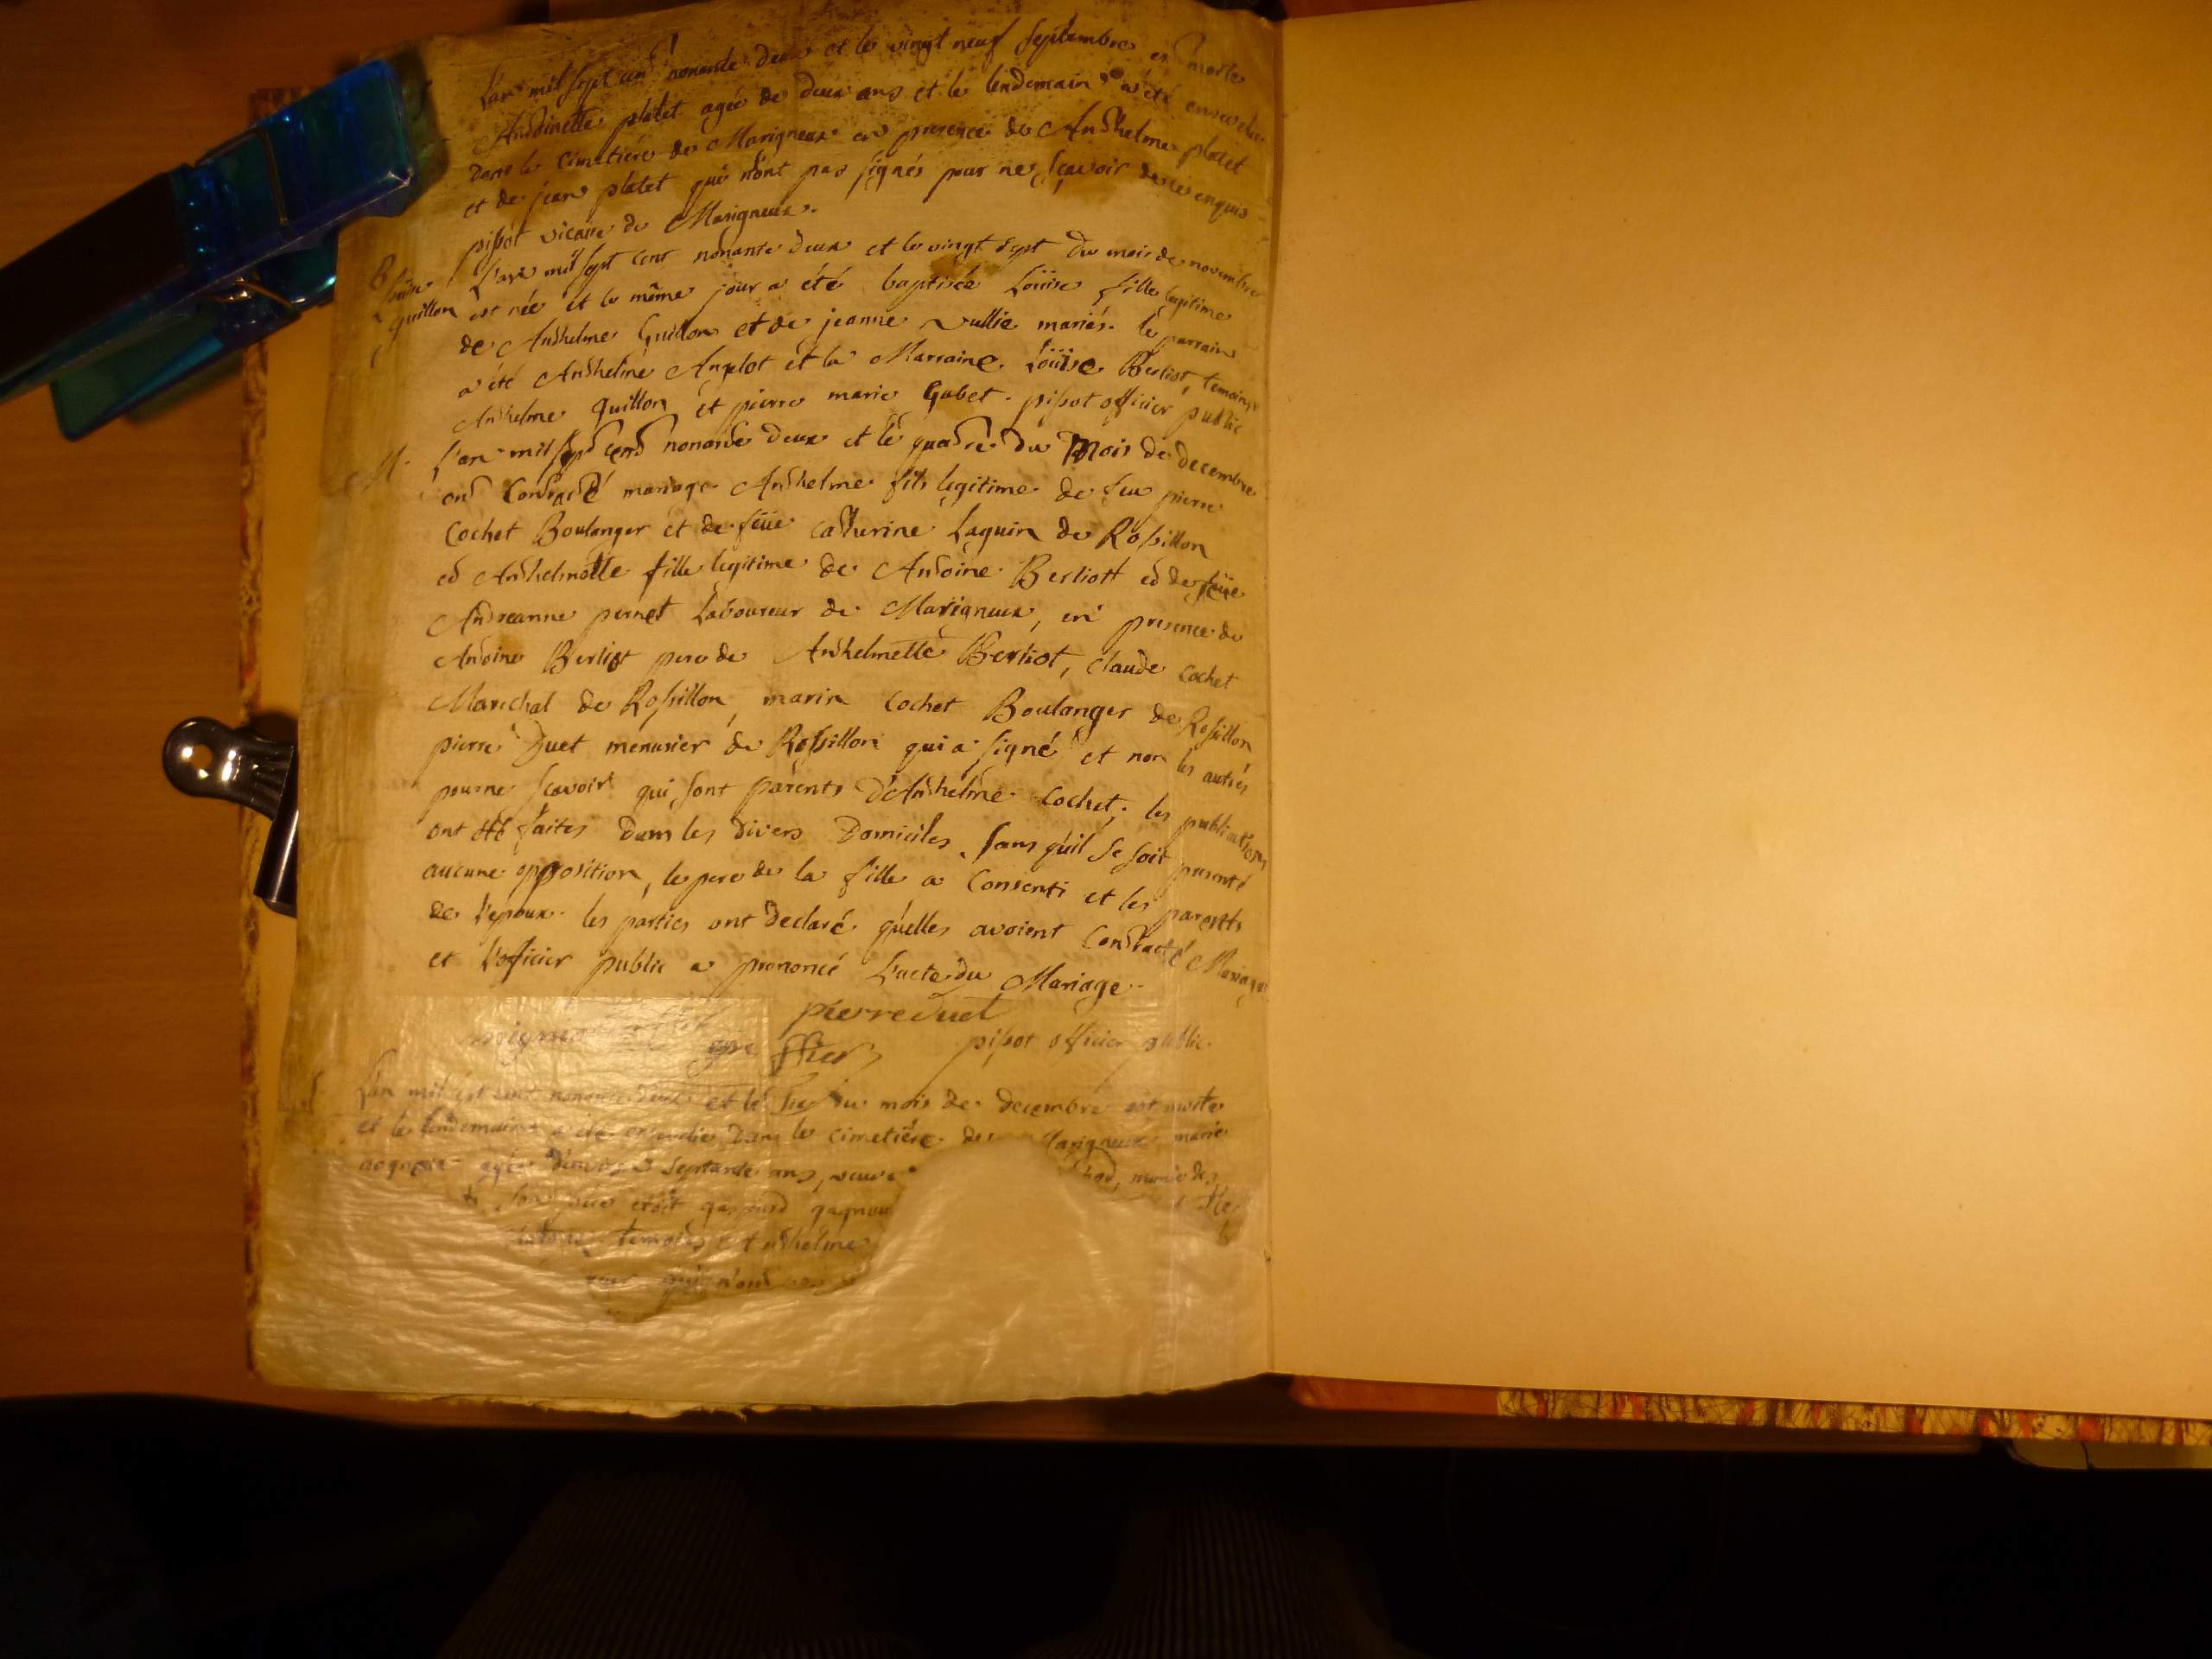 L'an mil sept cent nonante deux et le vingt neuf septembre est morte
Anthoinette platet agée de deux ans et le lendemain a été ensevelie
dans le cimetière de Marigneux en presence de Anthelme platet
et de jean platet qui n'ont pas signés pour ne sçavoir de ce enquis
pisot vicaire de Marigneux.
B
Loüise
guillon
L'an mil sept cent nonante deux et le vingt sept du mois de novembre
est née et le même jour a été baptisée Loüise fille legitime
de Anthelme Guillon et de jeanne vullie mariés. le parrain
a été Anthelme Angelot et la Marraine Loüise Berliot, temoins
Anthelme Guillon et pierre marie Gubet. pisot officier public
M.
L'an mil sept cent nonante deux et le quatre du Mois de decembre
ont Contracté mariage Anthelme fils legitime de feu pierre
Cochet Boulanger et de feüe Catherine Laguin de Rossillon
et Anthelmette fille legitime de Antoine Berliott et de feüe
Andreanne pernet Laboureur de Marigneux, en presence de
Antoine Berliot pere de Anthelmette Berliot, claude cochet
Marechal de Rossillon, marin Cochet Boulanger de Rossillon
pierre Duet menusier de Rossillon qui a signé et non les autres
pour ne scavoir qui sont parents d'Anthelme Cochet; les publications
ont été faites dans les divers Domiciles, sans qu'il se soit presenté
aucune opposition, le pere de la fille a Consenti et les parents
de l'epoux. les parties ont declaré qu'elles avoient Contracté Mariage
et l'officier public a prononcé L'acte du Mariage.
pierre duet
greffier pisot officier public.
L'an mil sept cent nonante deux et le du mois de decembre est morte
et le lendemain a été ensevelie dans le cimetière de Marigneux marie
agée d'environ septante ans, veuve munie des
son père etoit gaspard
temoins Anthelme
qui n'ont pas